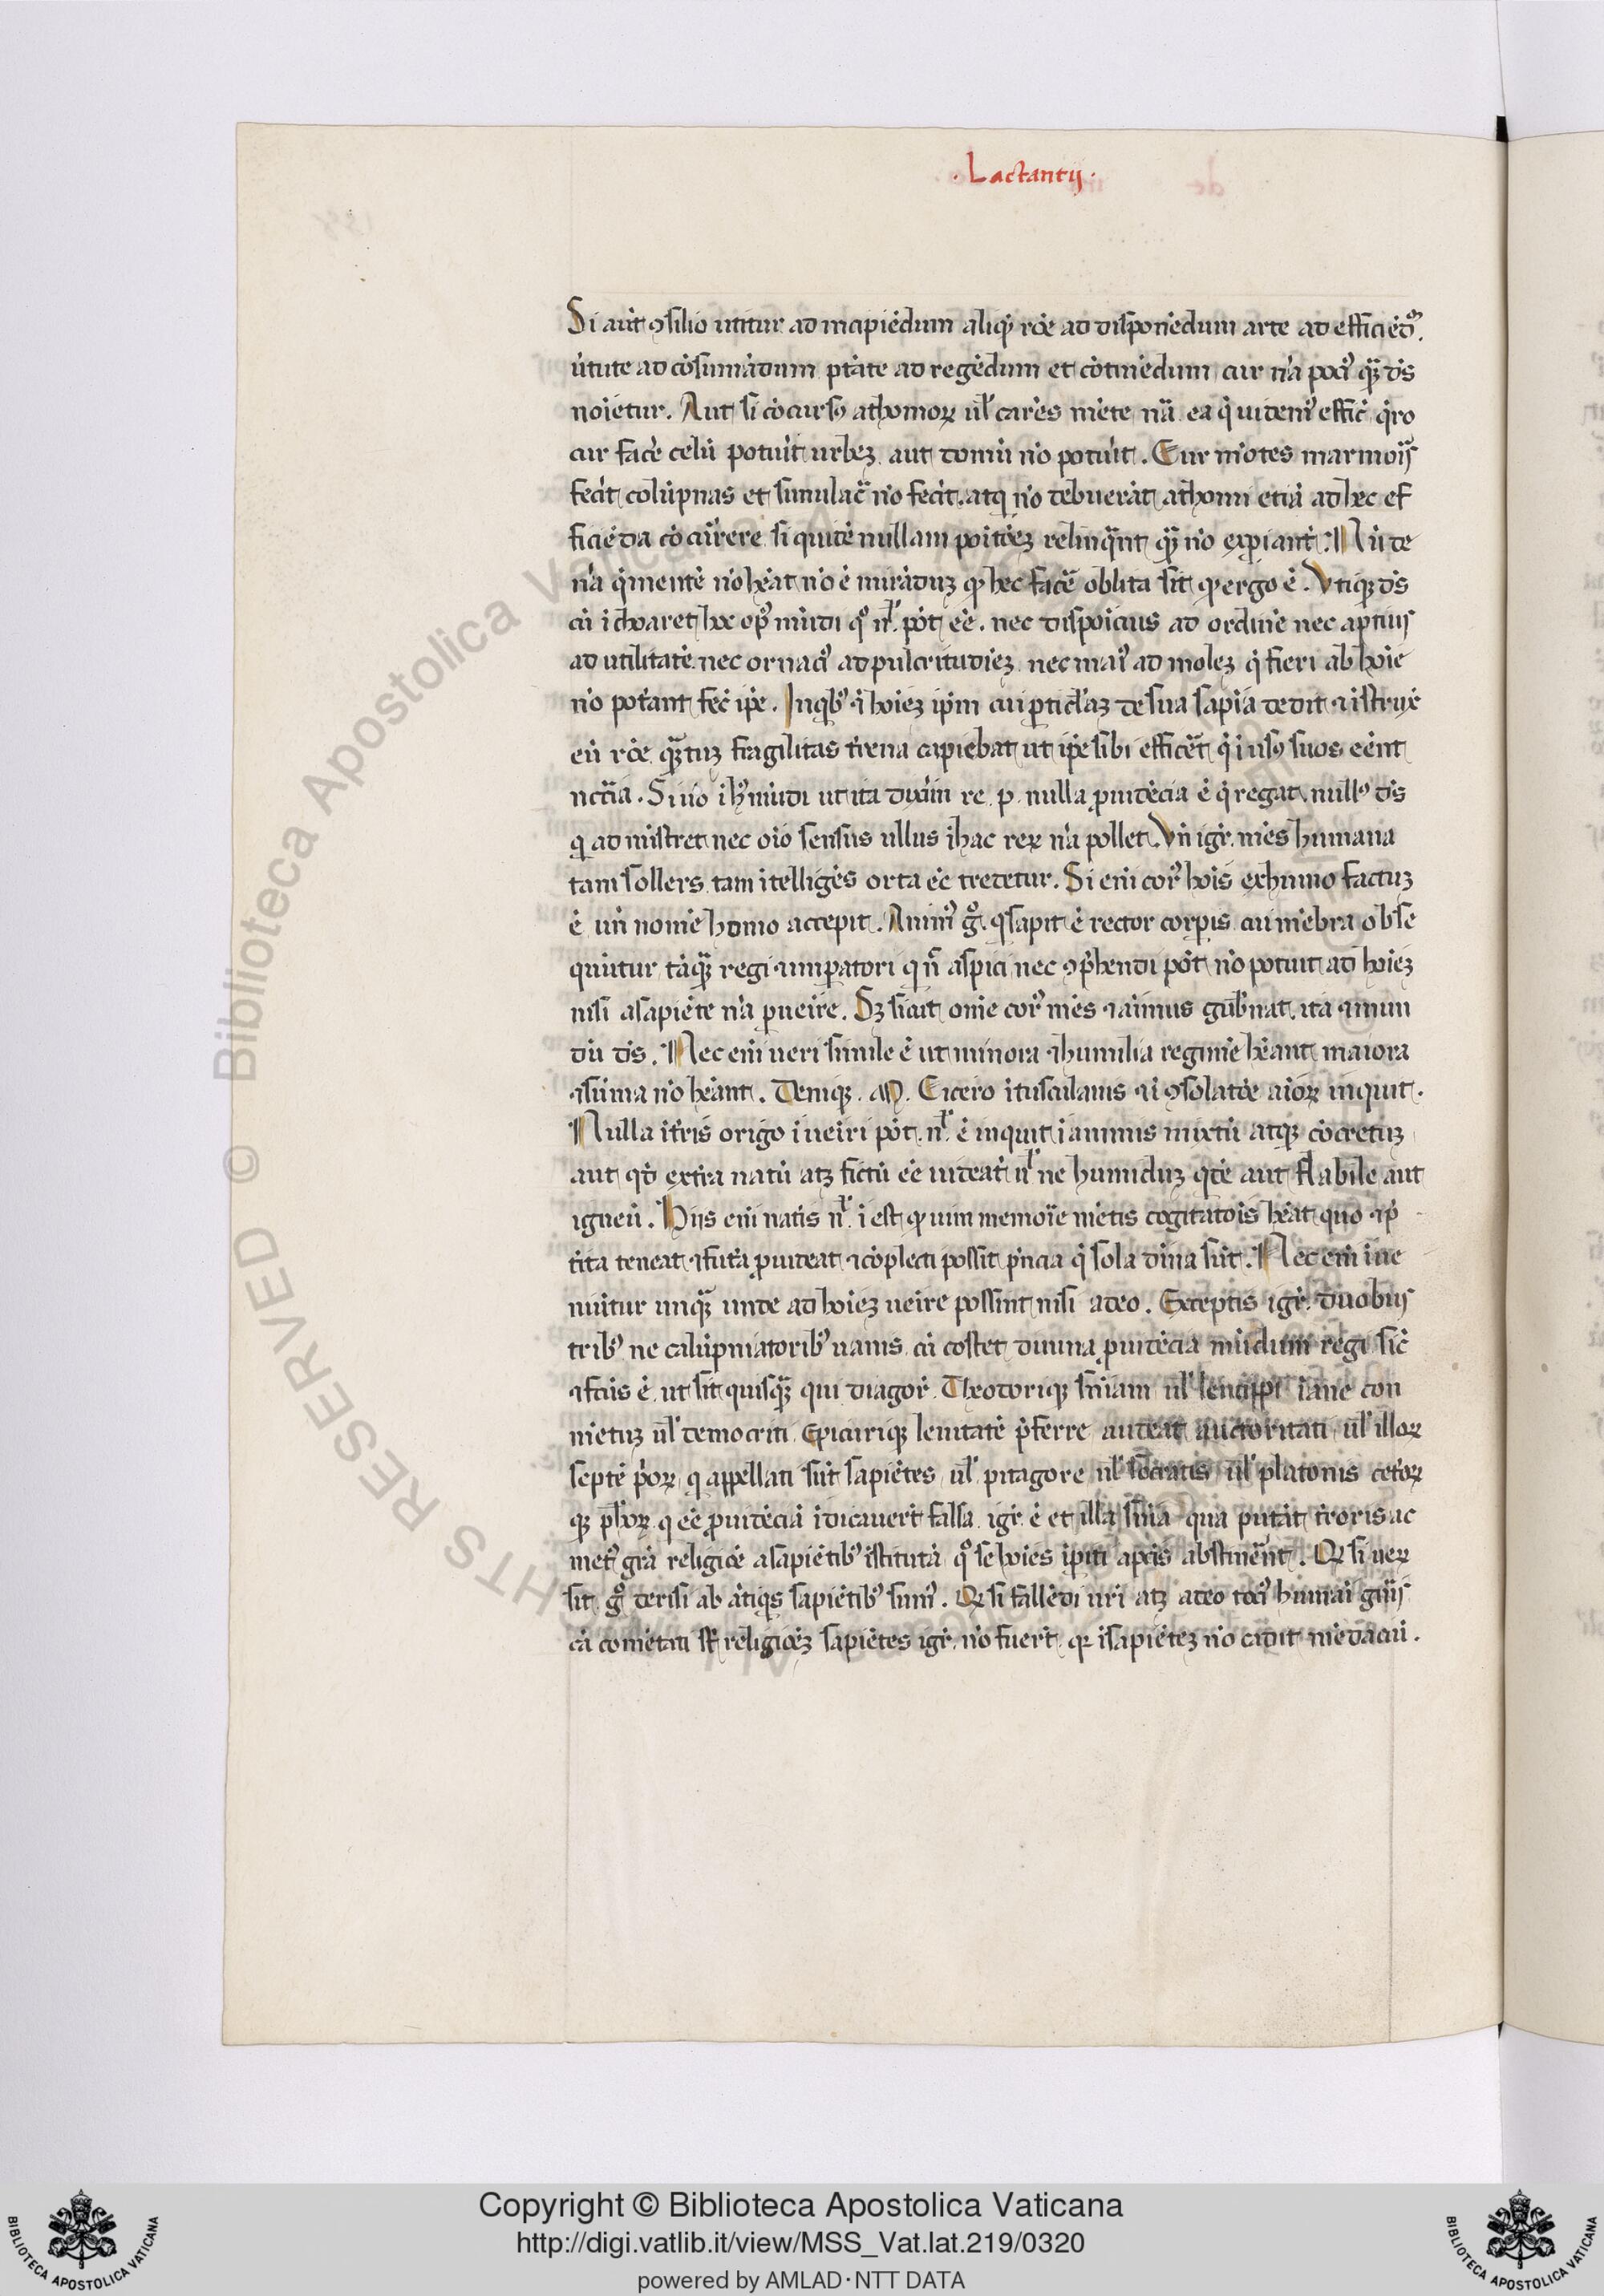 . Lactantij .
Si aut̄ ꝯsilio utitur ad incipiēdum aliqͥ rōe ad disponēdum arte ad efficiēdꝫ.
u̇tute ad cōsumādum ptāte ad regēdum et cōtinēdum cur nā poci᷒ qꝫ dṡ
noīetur. Aut si cōcurs᷒ athomoꝝ ul̕ carēs mēte nā ea q̇ uidem᷒ effic̄ q̄ro
cur facē celū potuit urbeꝫ aut domū nō potuit. Cur mōtes marmoīs
fecit colūpnas et simulac̄ nō fecit. atqꝫ nō debuerāt athomi etiā ad hec ef
ficiēda cōcurrere si quidē nullam poītōeꝫ relinq̄nt qꝫ nō expiant. Nū de
nā q̇ mentē nō heāt nō ē mirāduꝫ qꝫ hec facē oblita sit qꝫ ergo ē. Vtiqꝫ dṡ
cū īchoaret hoc op᷒ mūdi qͦ nl̕ pōt eē. nec dispōicius ad ordinē nec aptius
ad utilitatē. nec ornaci᷒ ad pulcritudīeꝫ nec mai᷒ ad moleꝫ q̇ fieri ab hoīe
nō potāant fec̄ ip̄e. Inqb᷒ ⁊ hoīeꝫ ip̄m cui ꝑticl̕aꝫ de sua sapīa dedit ⁊ īstruxē
eū rōe qꝫtuꝫ fragilitas t̄rena capiebat ut ip̄e sibi efficēt q̇ ī us᷒ suos eēnt
nccīa. Si uō ī h᷒ mūdi ut ita dixīm re. p. nulla ꝓuidēcia ē q̇ regat. null᷒ dṡ
qͥ admīstret nec oīo sensus ullus ī hac reꝝ nā pollet. Vn̄ igr̄ mēs humana
tam sollers tam ītelligēs orta eē credetur. Si enī cor᷒ hoīs ex humo factuꝫ
ē un̄ nomē homo accepit. Anim᷒ gͦ. qͥ sapit ē rector corꝑis cui mēbra obse
quūtur tāqꝫ regi ⁊ imꝑatori qͥ n̄ aspici nec ꝯp̄hendi pōt nō potuit ad hoīeꝫ
nisi a sapiēte nā ꝑueīre. Sꝫ sicut omē cor᷒ mēs ⁊ aīmus gub̄nat ita ⁊ mun
dū dṡ. Nec enī ueri simile ē ut minora ⁊ humilia regimē heānt maiora
⁊ sūma nō heānt. Deniqꝫ. M. Cicero ī tusculanis ⁊ ī ꝯsolatōe aīoꝝ inquit.
Nulla ī tr̄is origo īueīri pōt. nl̕ ē inquit ī animis mixtū atqꝫ cōcretuꝫ
aut qd̄ ex tr̄a natū atꝫ fictū eē uideat̄ ul̕ ne humiduꝫ qdē aut flabile aut
igneū. Hijs enī natīs nl̕ īest qꝫ uim memoīe mētis cogitatōis heāt quo ⁊ p̄
tita teneat ⁊ fut̄a ꝓuideat ⁊ cōplecti possit p̄ncia q̇ sola dīna sūt. Nec enī īue
nūtur unqꝫ unde ad hoīeꝫ ueīre possint nisi a deo. Exceptis igr̄ duobus
trib᷒ ne calūpniatorib᷒ uanis cū cōstet diuina ꝓuidēcia mūdum regi sic̄
⁊ fcūs ē. ut sit quisqꝫ qui diagor̄ Theodoriqꝫ sniam ul̕ leucippi iane con
mētuꝫ ul̕ democriti Epicuriqꝫ leuitatē p̄ferre audeat auctoritati ul̕ illoꝝ
septē p̄oꝝ qͥ appellati sūt sapiētes ul̕ pitagore ul̕ socratis ul̕ platonis cetōꝝ
qꝫ phl̕oꝝ qͥ eē ꝓuidēciā īdicauert̄ falsa igr̄ ē et illa snīa qua putāt t̄roris ac
met᷒ grā religiōē a sapiētib᷒ īstitutā qͦ se hoīes īpiti a pccīs abstinēnt. Qꝛ si ueꝝ
sit gͦ derisi ab ātiqͥs sapiētib᷒ sum᷒. Qꝛ si fallēdi nr̄i atꝫ adeo toci᷒ humāi gnīs
cā cōmēti sūt religiōeꝫ sapiētes igr̄ nō fuert̄ qꝛ ī sapiēteꝫ nō cadit mēdaciū.
Copyright © Biblioteca Apostolica Vaticana
http://digi.vatlib.it/view/MSS_Vat.lat.219/0320
powered by AMLAD·NTT DATA